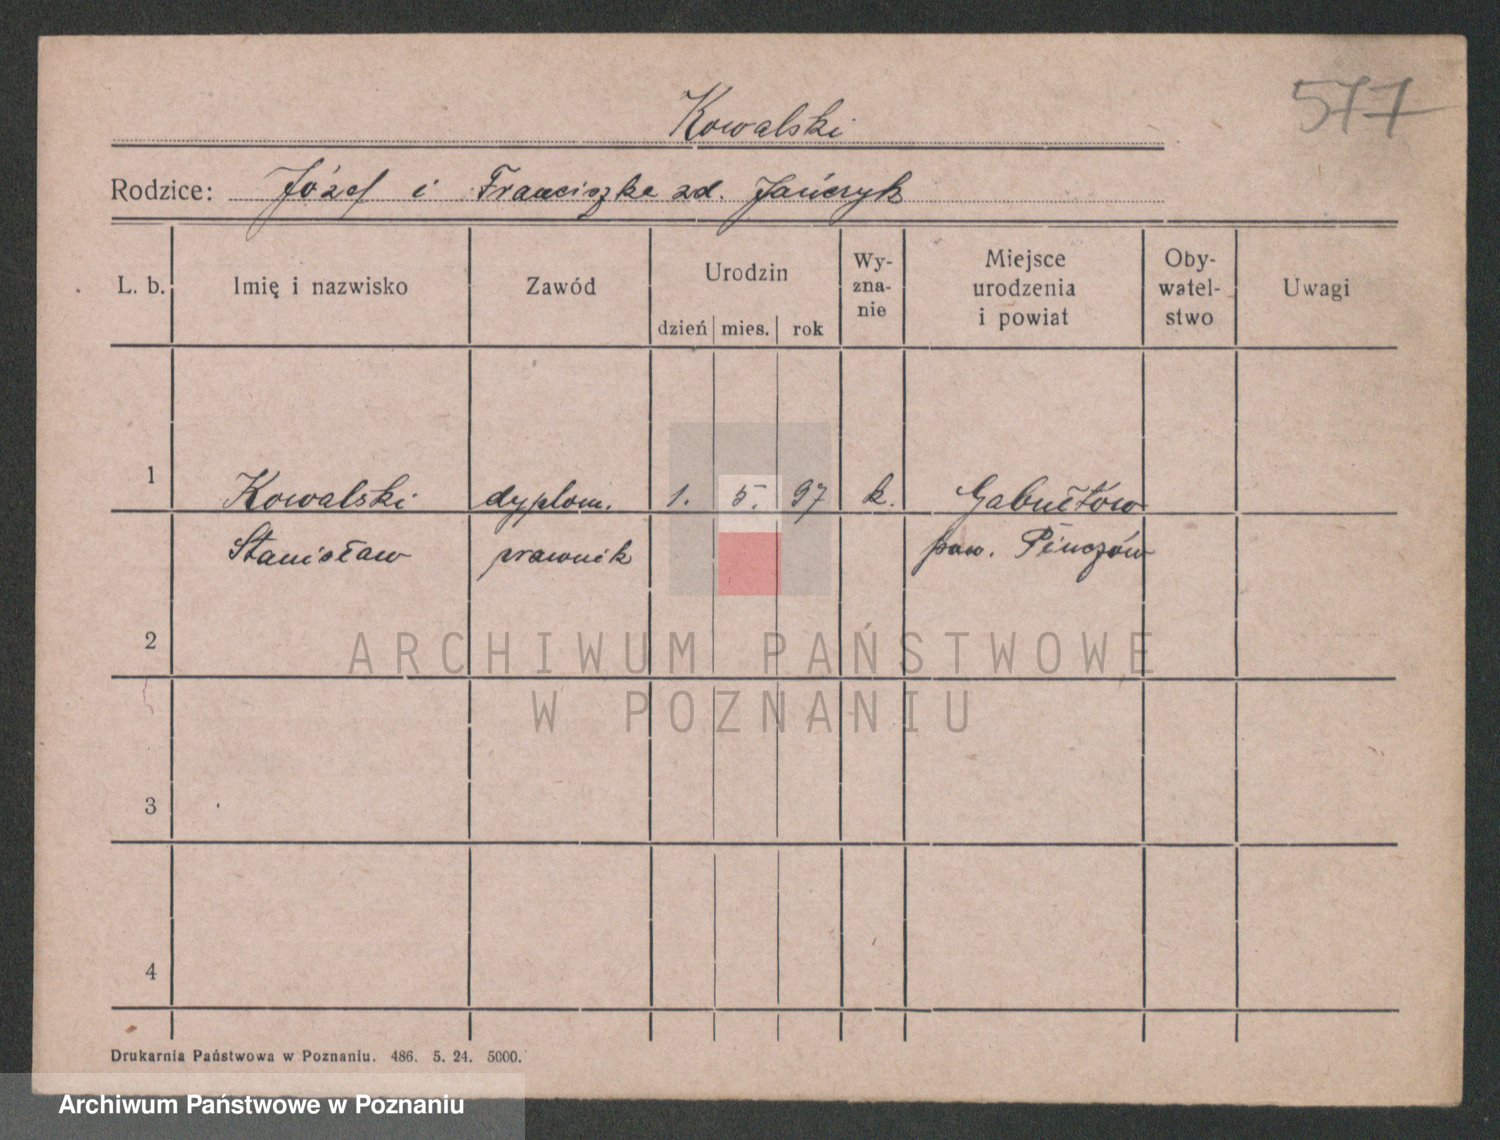 577
Kowalski
Rodzice: Józef i Franciszka zd. Jańczyk
L. b. Imię i nazwisko Zawód Urodzin dzień mies. rok Wy-zna-nie Miejsce urodzenia i powiat Oby-watel-stwo Uwagi
1 Kowalski dyplom. 1. 5. 97 k.
Stanisław prawnik pow. Pińczów
2
ARCHIWUM PAŃSTWOWE
W POZNANIU
3
4
Drukarnia Państwowa w Poznaniu. 486. 5. 24. 5000.
Archiwum Państwowe w Poznaniu